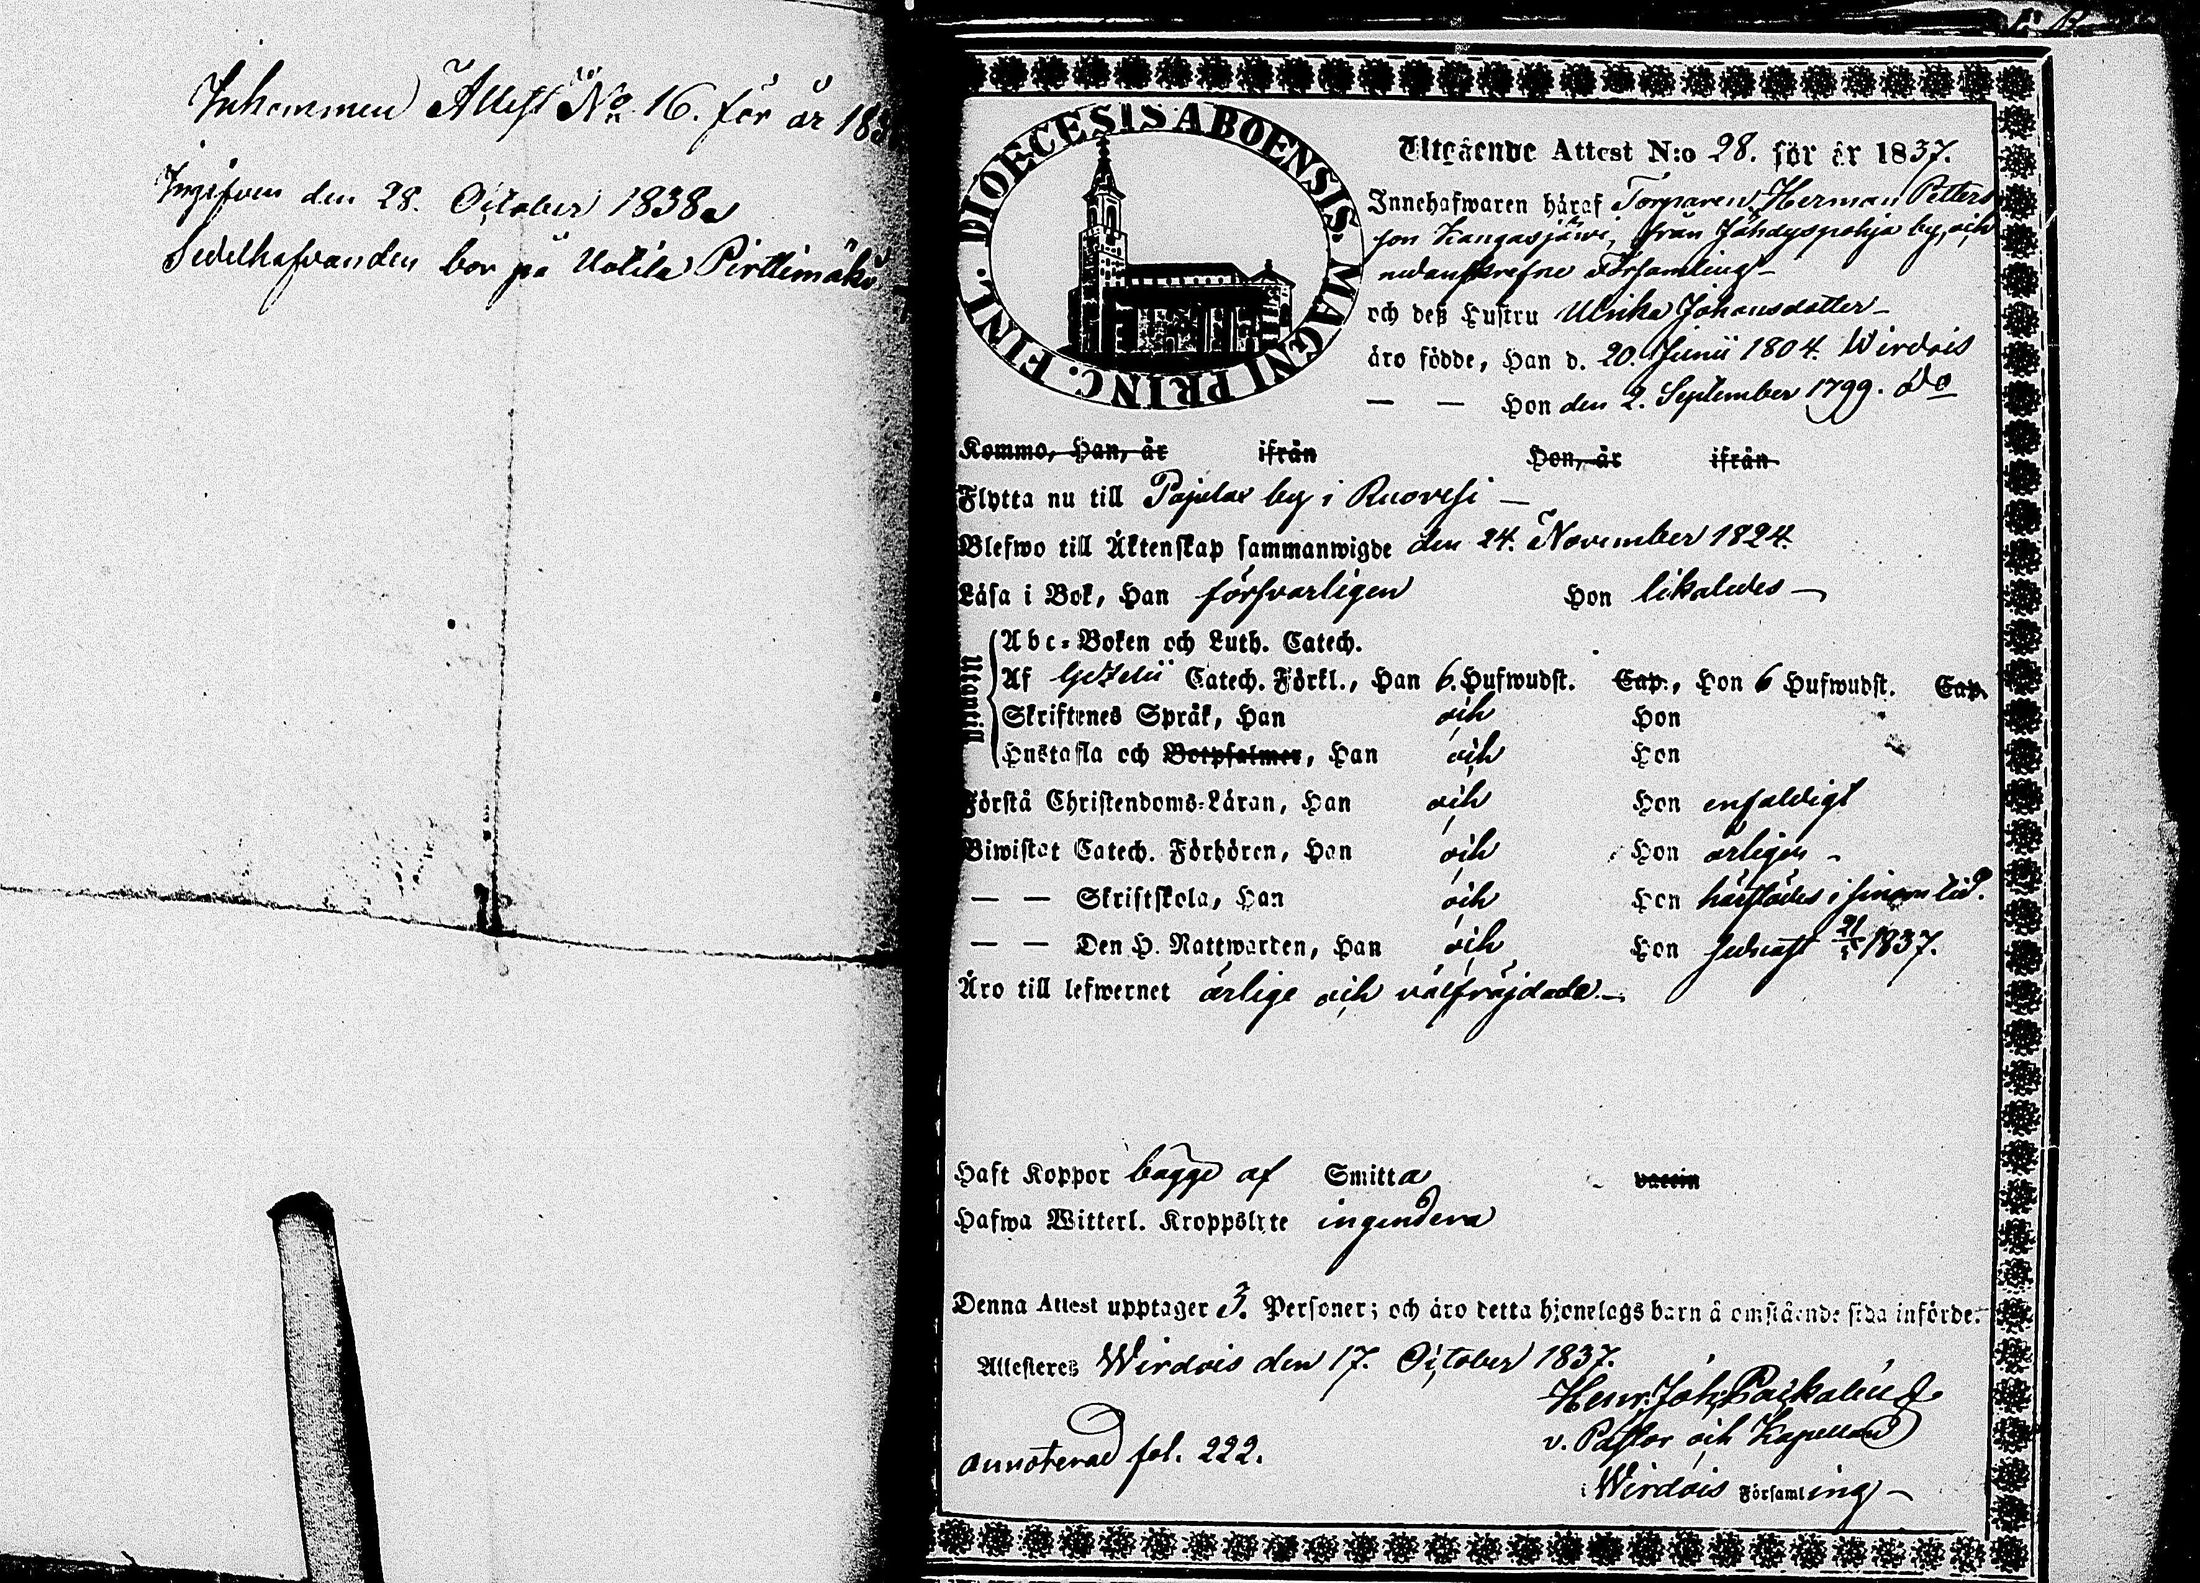 Inkommen Attest No 16. för år 183
Ingifven den 28. October 1838
Sedelhafvanden bor på Uotila Pirttimäki
DIOECESIS ABOENSIS. MAGNI PRINC. FINL.
Utgående Attest N:o 28. för år 1837.
Innehafwaren häraf Torparen Herman Petters
son Kangasjäwi, från Jähdyspohja by, och
nedanskrefne Församling
och deß Hustru Ulrika Johansdotter
äro födde, Han d. 20. Junii 1804. Wirdois
— — Hon den 2. September 1799. do
Komme, Han, är ifrån Hon, är ifrån
Flytta nu till Pajulax by i Ruovesi
Blefwo till Äktenskap sammanwigde den 24. November 1824.
Läsa i Bok, Han försvarligen Hon likaledes
Utantill
Abc-Boken och Luth. Catech.
Af Gezelii Catech. Förkl., Han 6. Hufwudst. Cap., Hon 6 Hufwudst. Cap.
Skriftenes Språk, Han och Hon
Hustafla och Botpsalmer, Han och Hon
Förstå Christendoms-Läran, Han och Hon enfaldigt
Biwistat Catech. Förhören, Han och Hon årligen
— — Skriftskola, Han och Hon härstädes i sinom tid.
— — Den H. Nattwarden, Han och Hon sednast 1837.
Äro till lefwernet ärlige och välfräjdade.
Haft Koppor bägge af Smitta vaccin
Hafwa Witterl. Kroppslyte ingendera
Denna Attest upptager 3. Personer; och äro detta hjonelags barn å omstående sida införde.
Attesteres Wirdois den 17. October 1837.
Henr. Joh.
v. Pastor och Kapellan
i Wirdois Församling
annoterad fol. 222.